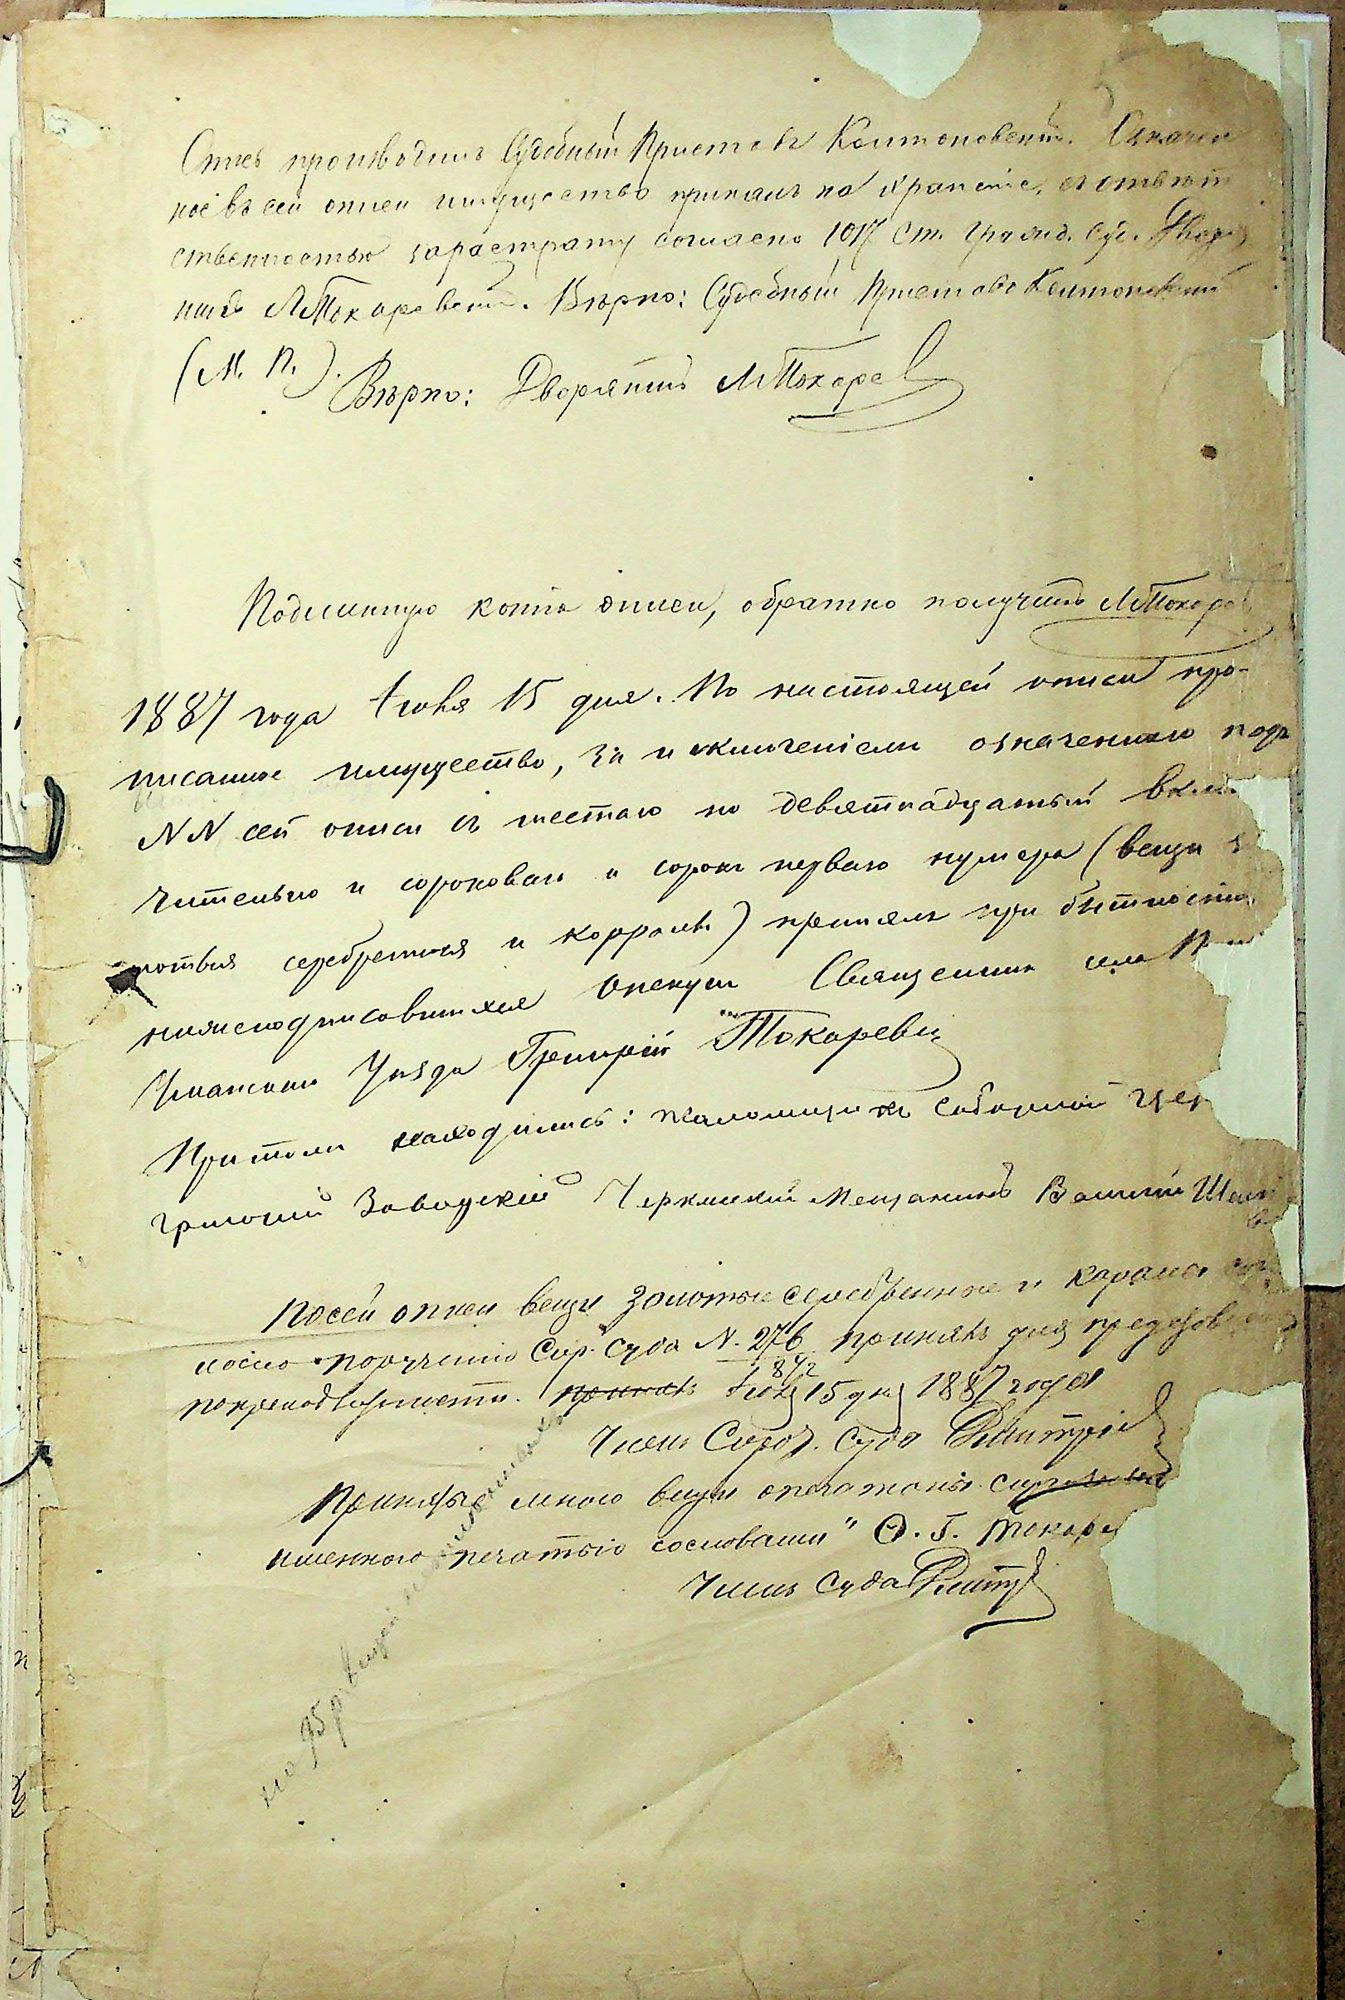 Опись производилъ Судебный Приставъ Колтоновскій. Означен
ное въ сей описи имущество принялъ на храненіе, съ отвѣт
ственностью за растрату согласно 1017 ст. Гражд. Суд. Дворя
нинъ Токаревскій. Вѣрно: Судебный Приставъ Колтоновскій
(М. П.). Вѣрно: Дворянинъ Токарев
Подлинную копію описи, обратно получилъ Токарев
1887 года Іюня 15 дня. По настоящей описи про-
писанное имущество, за исключеніемъ означеннаго подъ
NN сей описи съ шестаго по девятнадцатый вклю
чительно и сороковаго и сорокъ перваго нумера (вещи з
лотыя серебренныя и кораллы) принялъ при бытности
нижеподписавшихся Опекунъ Священникъ села
Уманскаго Уѣзда Григорій Токаревскі
При томъ находились: псаломщикъ Соборной Цер
Григорій Заводскій Черкаскій Мещанинъ Василій
По сей описи вещи золотые серебренные и каралы
ласно порученію Сир. Суда N. 276 принялъ для предъ
по принадлежности. принялъ Іюня 15 дня 1887 года
872
Членъ Сирот. Суда Дмитрій
Принятые мною вещи опечатаны
именною печатью со словами" Ѳ. Г. Токаре
Членъ Суда Дмит
на 95 р вещей